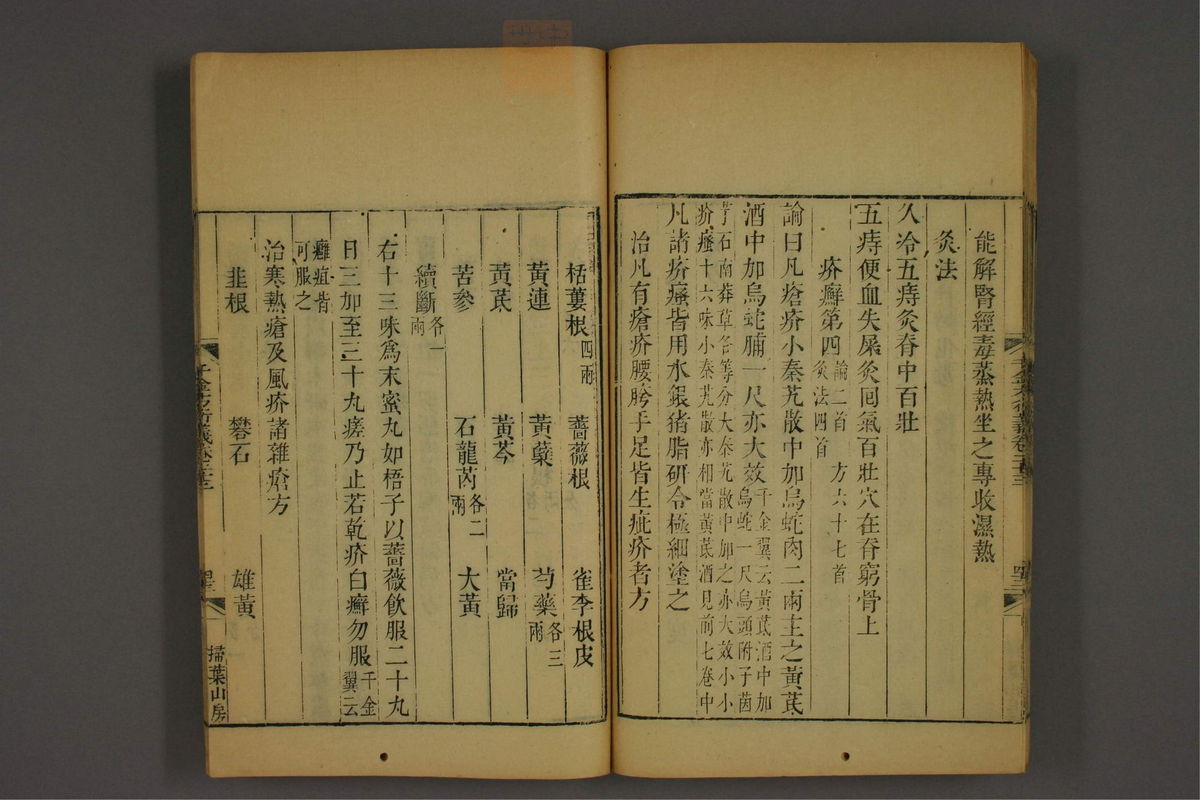 能解腎經毒蒸熱坐之專收濕熱
灸法
久冷五痔灸脊中百壯
五痔便血失屎灸囘氣百壯穴在脊窮骨上
疥癬第四論二首 方六十七首灸法四首
論曰凡瘡疥小秦艽散中加烏蛇肉二兩主之黃芪
酒中加烏蛇脯一尺亦大效千金翼云黃芪酒中加烏蛇一尺烏頭附子茵
芋石南莽草各等分大秦艽散中加之亦大效小小
疥瘙十六味小秦艽散亦相當黃芪酒見前七卷中
凡諸疥癢皆用水銀猪脂研令極細塗之
治凡有瘡疥腰胯手足皆生疵疥者方
千金方衍義卷二十三
栝蔞根四兩 薔薇根 雀李根皮
黃連 黃蘗 芍藥各三兩
黃芪 黃芩 當歸
苦參 石龍芮各二兩 大黃
續斷各一兩
右十三味爲末蜜丸如梧子以薔薇飲服二十丸
日三加至三十丸瘥乃止若乾疥白癬勿服千金翼云
癰疽皆可服之
治寒熱瘡及風疥諸雜瘡方
韭根 礬石 雄黃
千金方衍義卷二十三
掃葉山房